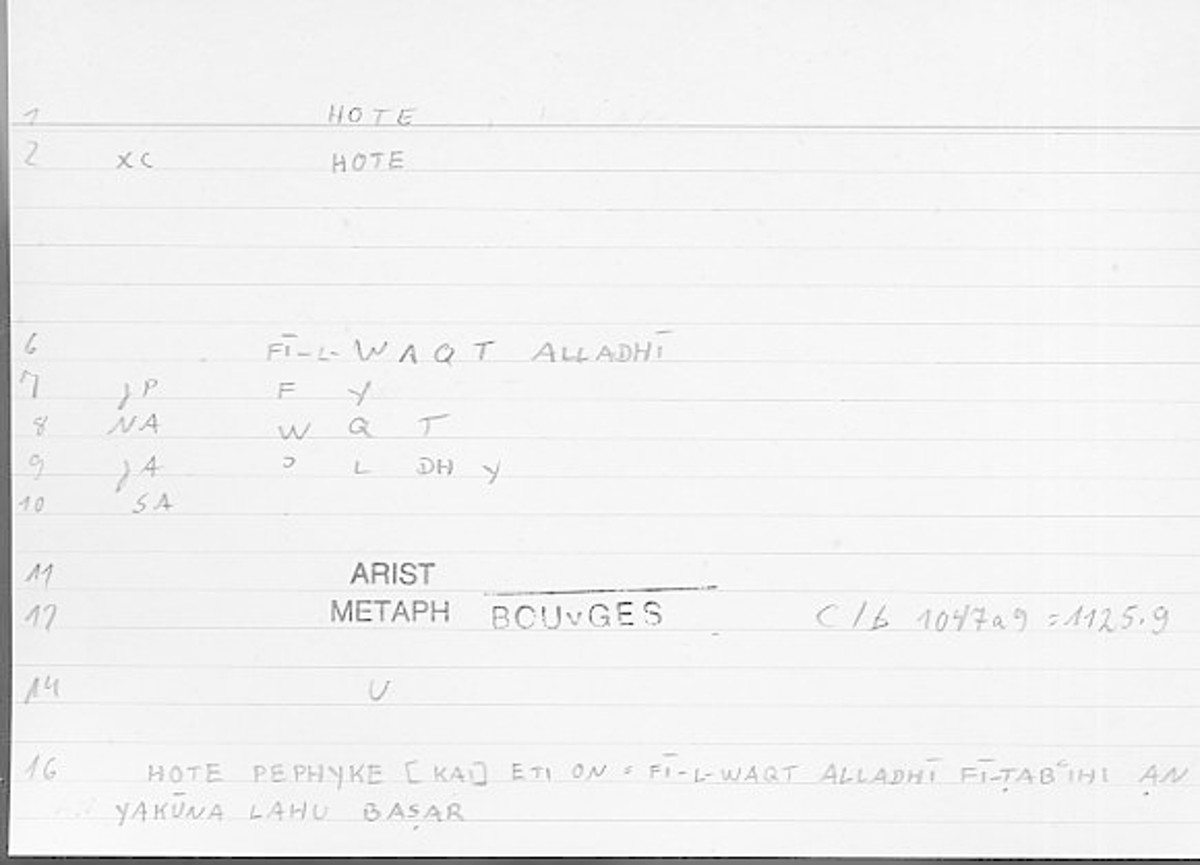 1 HOTE
2 XC HOTE
6 FĪ-L-WAQT ALLADHĪ
7 jP F Y
8 NA W Q T
9 jA ʾ L DH Y
10 SA
11 ARIST
12 METAPH BOUYGES C/b 1047a9 = 1125.9
14 U
16 HOTE PEPHYKE [KAI] ETI ON = FĪ-L-WAQT ALLADHĪ FĪ-ṬABʿIHI AN
YAKŪNA LAHU BAṢAR